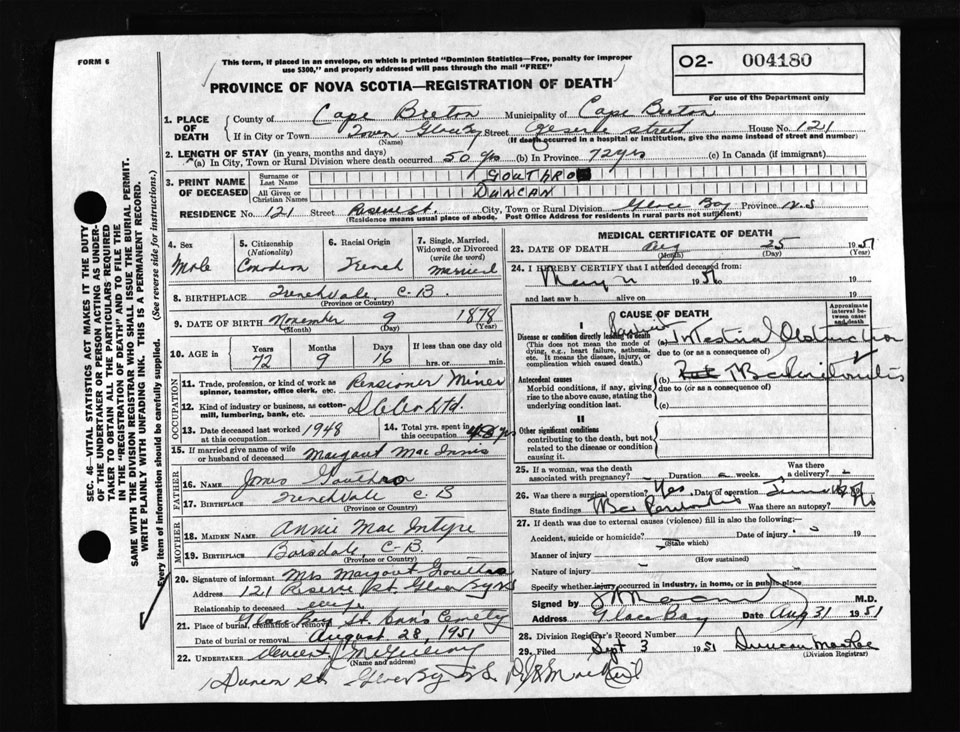 FORM 6
This form, if placed in an envelope, on which is printed "Dominion Statistics—Free, penalty for improper
use $300," and properly addressed will pass through the mail "FREE"
O2- 004180
For use of the Department only
PROVINCE OF NOVA SCOTIA—REGISTRATION OF DEATH
SEC. 46—VITAL STATISTICS ACT MAKES IT THE DUTY
OF THE UNDERTAKER OR PERSON ACTING AS UNDER-
TAKER TO OBTAIN ALL THE PARTICULARS REQUIRED
IN THE "REGISTRATION OF DEATH" AND TO FILE THE
SAME WITH THE DIVISION REGISTRAR WHO SHALL ISSUE THE BURIAL PERMIT.
WRITE PLAINLY WITH UNFADING INK. THIS IS A PERMANENT RECORD.
Every item of information should be carefully supplied. (See reverse side for instructions.)
1. PLACE OF DEATH County of Cape Breton Municipality of Cape Breton
If in City or Town Town Street Reserve Street House No. 121
(Name) (If death occurred in a hospital or institution, give the name instead of street and number)
2. LENGTH OF STAY (in years, months and days)
(a) In City, Town or Rural Division where death occurred 50 yrs (b) In Province 72 yrs (c) In Canada (if immigrant)
3. PRINT NAME OF DECEASED Surname or Last Name GOUTHRO
All Given or Christian Names DUNCAN
RESIDENCE No. 121 Street Reserve St. City, Town or Rural Division Glace Bay Province N.S
(Residence means usual place of abode. Post Office Address for residents in rural parts not sufficient)
4. Sex Male
5. Citizenship (Nationality) Canadian
6. Racial Origin French
7. Single, Married, Widowed or Divorced (write the word) married
8. BIRTHPLACE Frenchvale C-B.
(Province or Country)
9. DATE OF BIRTH November 9 1878
(Month) (Day) (Year)
10. AGE in Years 72 Months 9 Days 16 If less than one day hrs. or min.
OCCUPATION
11. Trade, profession, or kind of work as spinner, teamster, office clerk, etc. Pensioner Miner
12. Kind of industry or business, as cotton-mill, lumbering, bank, etc. Ltd.
13. Date deceased last worked at this occupation 1948
14. Total yrs. spent in this occupation 48 yrs
15. If married give name of wife or husband of deceased Margaret Mac Innis
FATHER
16. NAME James Gouthro
17. BIRTHPLACE Frenchvale C-B
(Province or Country)
MOTHER
18. MAIDEN NAME Annie Mac Intyre
19. BIRTHPLACE Boisdale, C-B.
(Province or Country)
20. Signature of informant Mrs Margaret Gouthro
Address 121 Reserve St. Glace Bay NS
Relationship to deceased wife
21. Place of burial, cremation or removal Glace Bay St. Ann's Cemetery
Date of burial or removal August 28, 1951
22. UNDERTAKER Vincent J. McGillivray
(Name and address)
MEDICAL CERTIFICATE OF DEATH
23. DATE OF DEATH Aug 25 1951
(Month) (Day) (Year)
24. I HEREBY CERTIFY that I attended deceased from:
1951 to 19
and last saw h alive on 19
CAUSE OF DEATH
Approximate interval between cause and death
I
Disease or condition directly leading to death
(This does not mean the mode of dying, e.g., heart failure, asthenia, etc. It means the disease, injury, or complication which caused death.)
(a) Intestinal Obstruction
due to (or as a consequence of)
Antecedent causes
Morbid conditions, if any, giving rise to the above cause, stating the underlying condition last.
(b) TB
due to (or as a consequence of)
(c)
II
Other significant conditions
contributing to the death, but not related to the disease or condition causing it.
25. If a woman, was the death associated with pregnancy? Duration weeks. Was there a delivery?
26. Was there a surgical operation? Yes Date of operation June
State findings Was there an autopsy? No
27. If death was due to external causes (violence) fill in also the following:—
Accident, suicide or homicide? Date of injury 19
(State which)
Manner of injury
(How sustained)
Nature of injury
Specify whether injury occurred in industry, in home, or in public place
Signed by M.D.
Address Glace Bay Date Aug 31 1951
28. Division Registrar's Record Number
29. Filed Sept 3 1951 Duncan MacRae
(Division Registrar)